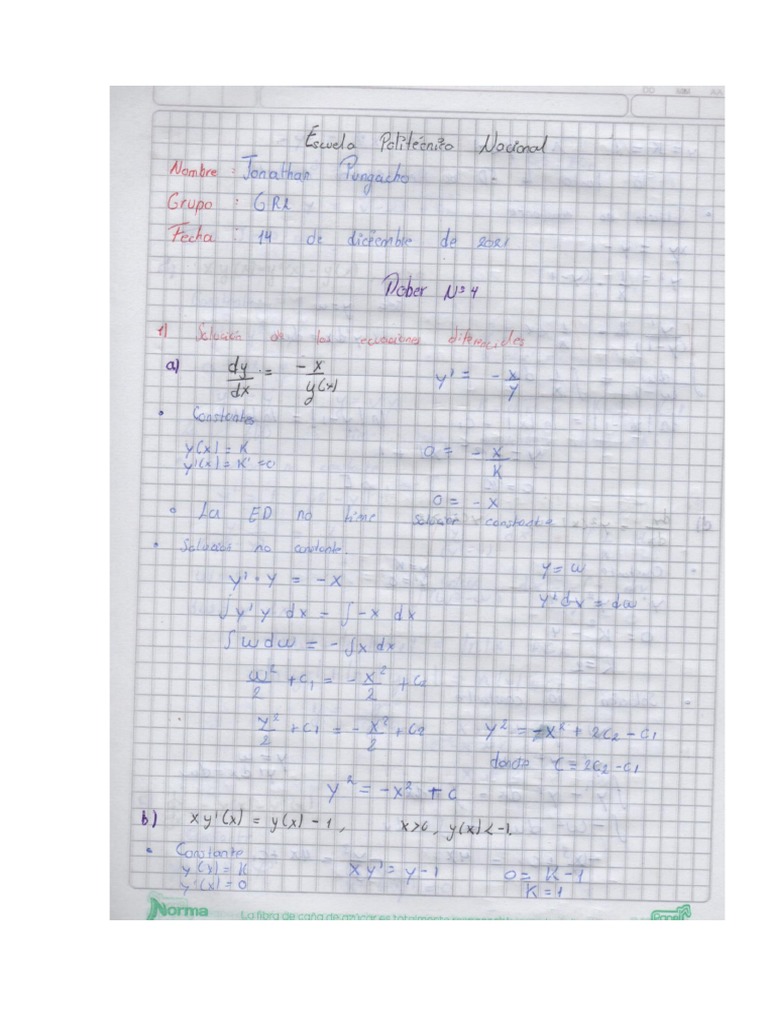 Escuela Politécnica Nacional
Nombre : Jonathan Pungacho
Grupo : GR2
Fecha : 14 de diciembre de 2021
Deber N° 4
1) Solución de las ecuaciones diferenciales
a) dy/dx = -x/y(x)    y' = -x/y
• Constantes
y(x) = K    0 = -x/K
y'(x) = K' = 0
0 = -x
• La ED no tiene solución constante
• Solución no constante.
y' · y = -x    y = w
∫ y' y dx = ∫ -x dx    y' dx = dw
∫ w dw = -∫ x dx
w²/2 + C₁ = -x²/2 + C₂
y²/2 + C₁ = -x²/2 + C₂    y² = -x² + 2C₂ - C₁
donde C = 2C₂ - C₁
y² = -x² + C
b) x y'(x) = y(x) - 1,    x>0, y(x) < -1.
• Constante
y(x) = K    x y' = y - 1    0 = K - 1
y'(x) = 0    K = 1
Norma
La fibra de caña de azúcar es totalmente